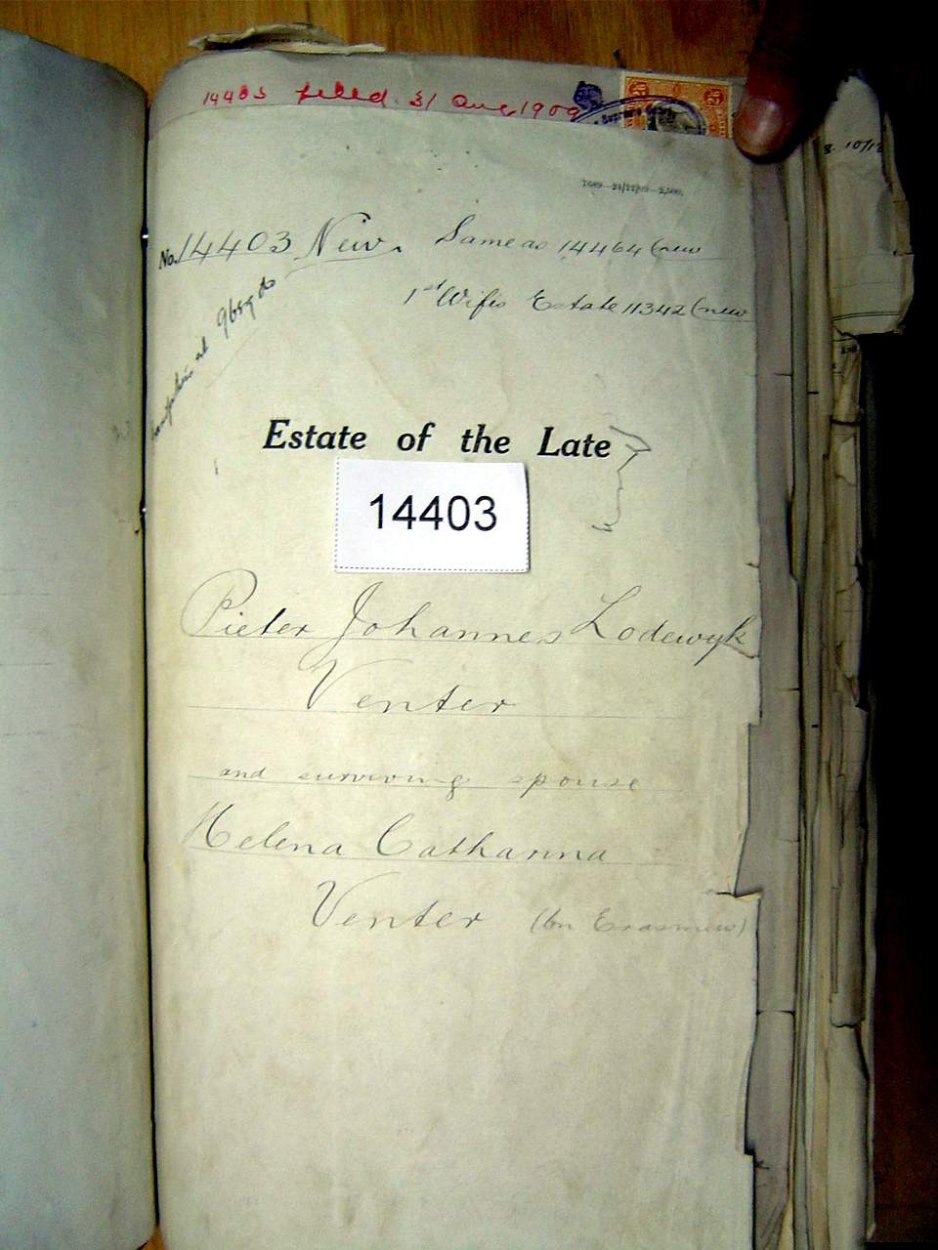 14403 filed 31 Aug 1909
No. 14403 New. Same as 14464 (new
1st Wifes Estate 11342 (new
Estate of the Late
14403
Pieter Johannes Lodewyk
Venter
and surviving spouse
Helena Catharina
Venter (bn Erasmus)